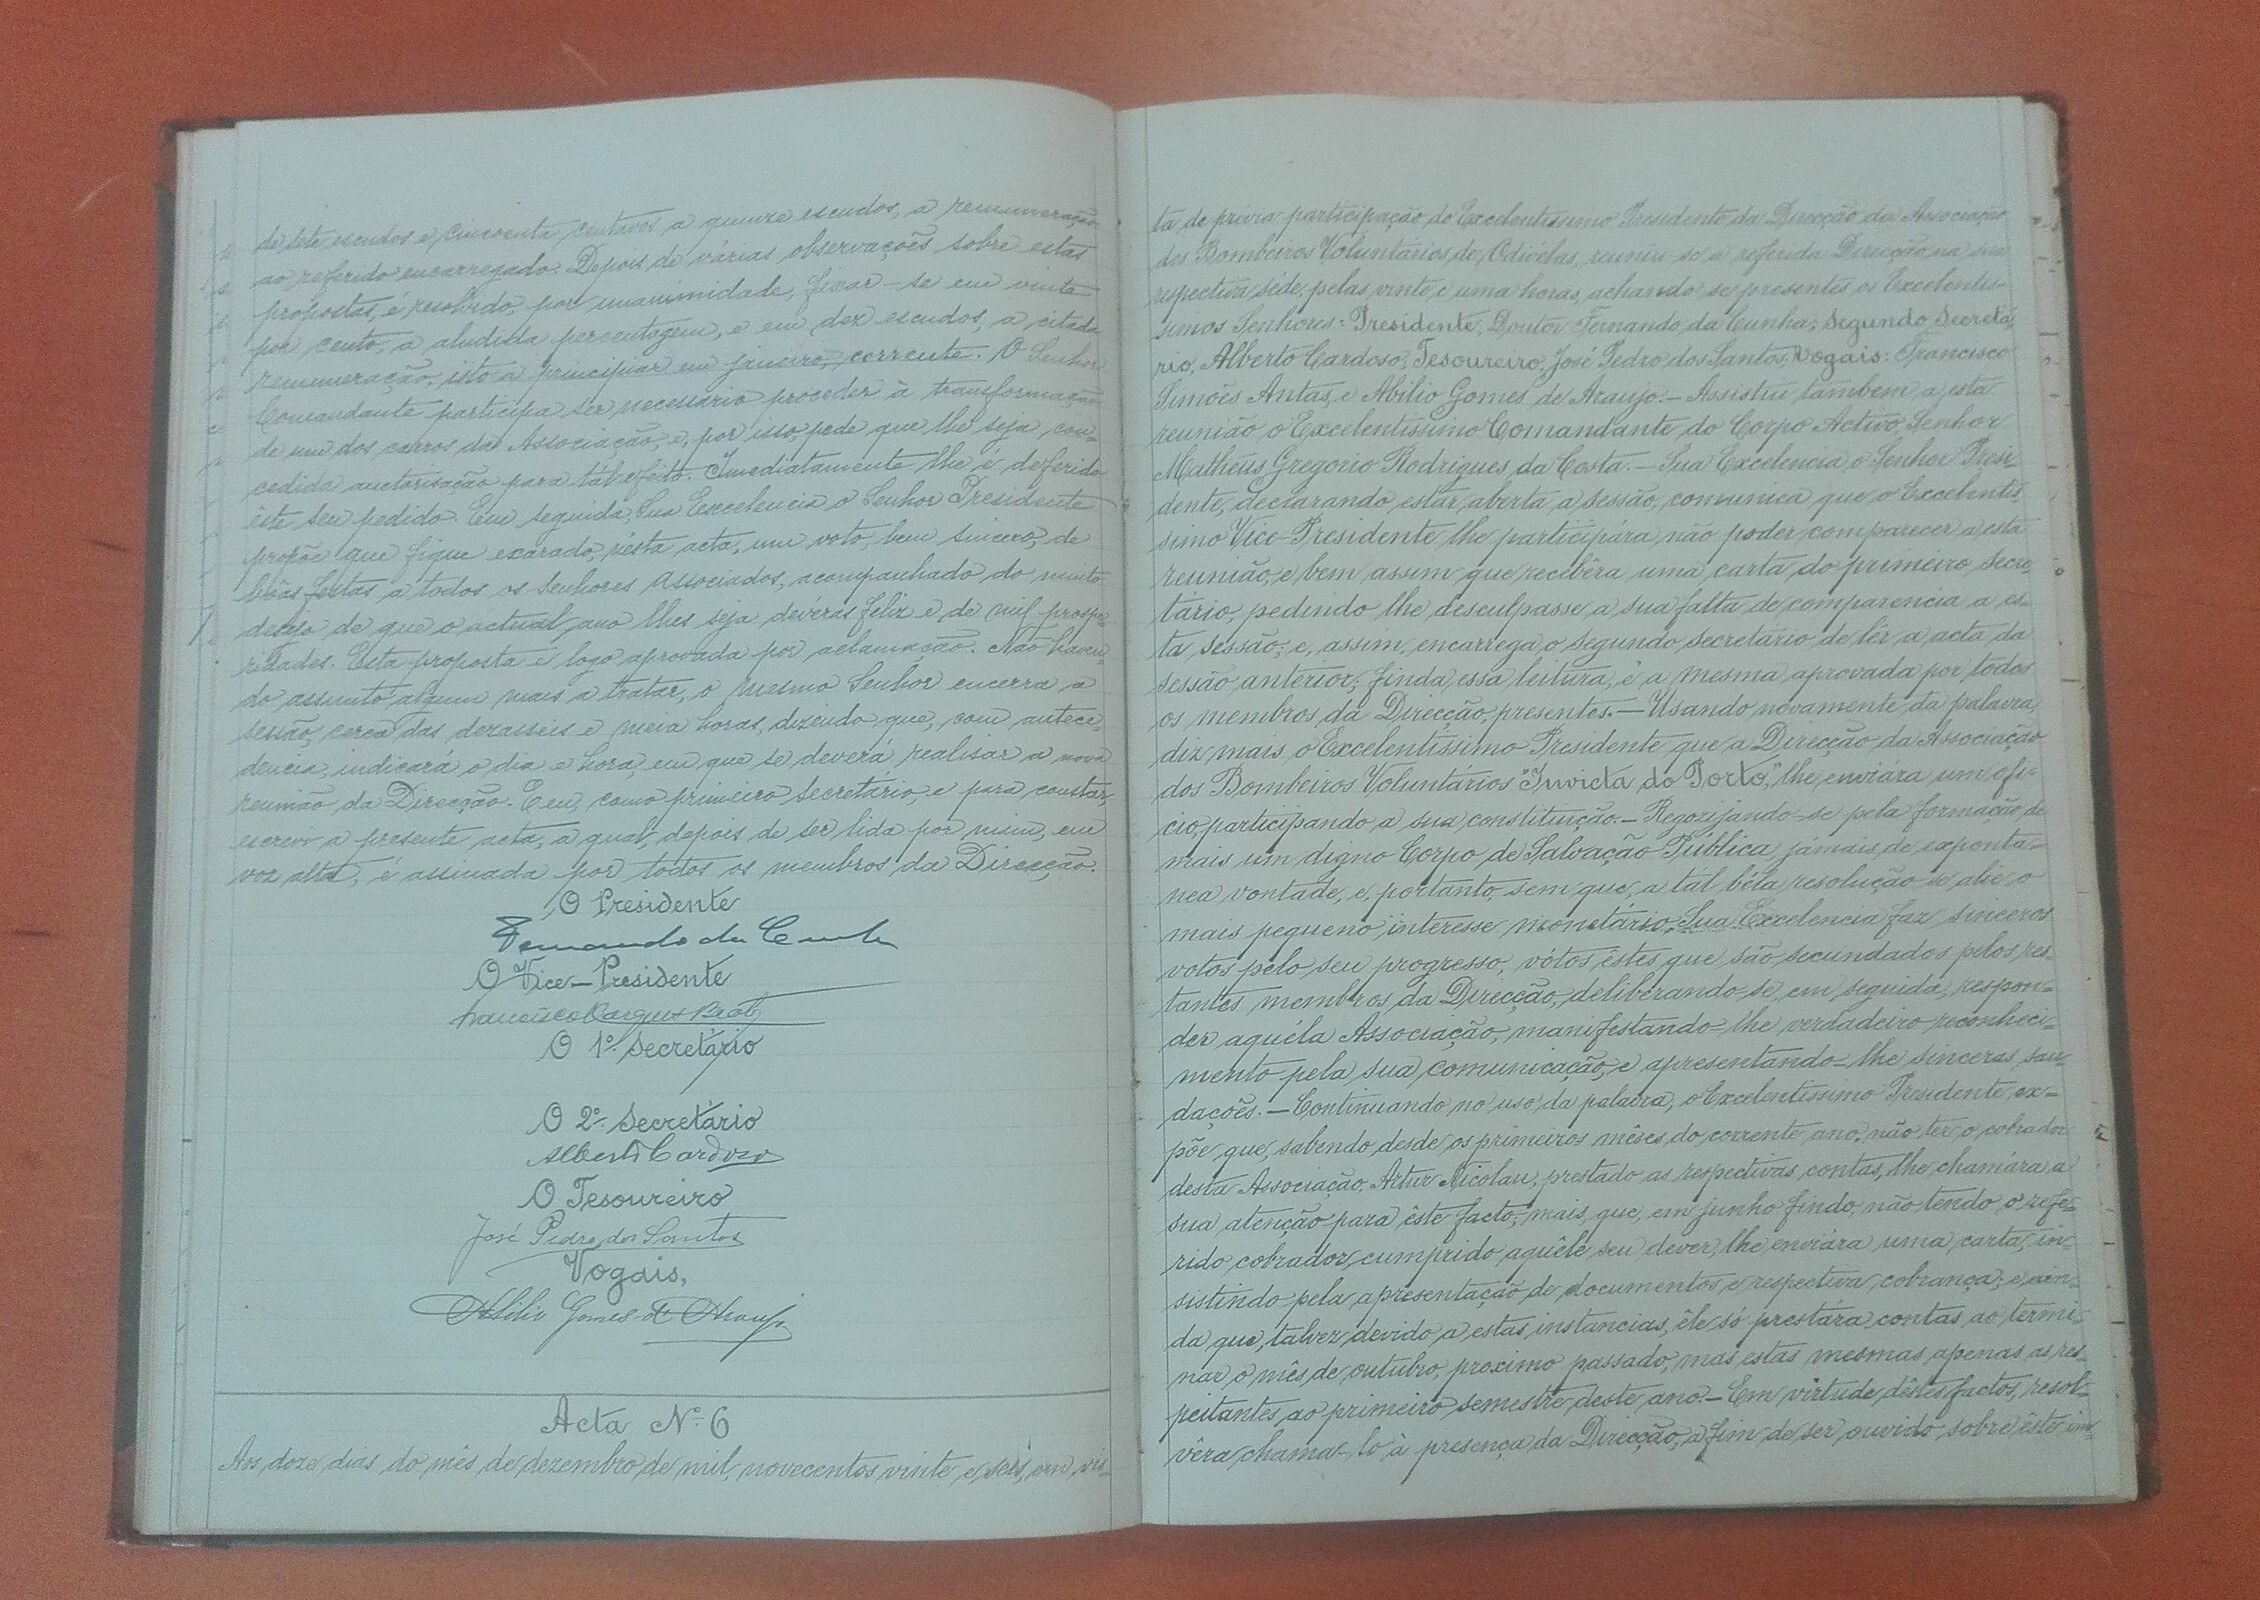 de sete escudos e cincoenta centavos a quinze escudos, a remuneração
ao referido encarregado. Depois de várias observações sobre estas
propostas, é resolvido, por unanimidade, fixar-se em vinte
por cento, a aludida percentagem, e em dez escudos, a citada
remuneração, isto a principiar em janeiro, corrente. O Senhor
Comandante participa ser necessário proceder à transformação
de um dos carros da Associação, e, por isso, pede que lhe seja con-
cedida auctorisação para tál efeito. Imediatamente lhe é deferido
êste seu pedido. Em seguida, Sua Excelencia o Senhor Presidente
propõe que fique exarado, nésta acta, um voto, bem sincero, de
bôas festas a todos os Senhores Associados, acompanhado do muito
desejo de que o actual ano lhes seja devéras feliz e de mil prospe-
ridades. Esta proposta é logo aprovada por aclamação. Não haven-
do assunto algum mais a tratar, o mesmo Senhor encerra a
sessão, cerca das dezasseis e meia horas, dizendo que, com antece-
dencia, indicará o dia e hora, em que se deverá realisar a nova
reunião da Direcção. E eu, como primeiro secretário, e para constar,
escrevi a presente acta, a qual, depois de ser lida por mim, em
voz alta, é assinada por todos os membros da Direcção.
O Presidente
Fernando da Cunha
O Vice-Presidente
Francisco
O 1º Secretário
O 2º Secretário
Alberto Cardozo
O Tesoureiro
José Pedro dos Santos
Vogais,
Abilio Gomes de Araujo
Acta Nº 6
Aos doze dias do mês de dezembro de mil novecentos vinte e seis, em vis-
ta de prévia participação do Excelentissimo Presidente da Direcção da Associação
dos Bombeiros Voluntários de Odivélas, reuniu-se a referida Direcção na sua
respectiva séde, pelas vinte e uma horas, achando-se presentes os Excelentis-
simos Senhores: Presidente, Doutor Fernando da Cunha; Segundo Secretá-
rio, Alberto Cardoso; Tesoureiro, José Pedro dos Santos; Vogais: Francisco
Simões Antas, e Abilio Gomes de Araujo.- Assistiu tambem a esta
reunião o Excelentissimo Comandante do Corpo Activo, Senhor
Mathêus Gregorio Rodrigues da Costa.- Sua Excelencia o Senhor Presi-
dente, declarando estar aberta a sessão, comunica que o Excelentis-
simo Vice-Presidente lhe participára não poder comparecer a esta
reunião, e bem assim que recebêra uma carta do primeiro secre-
tário, pedindo lhe desculpasse a sua falta de comparencia a es-
ta sessão; e, assim, encarrega o segundo secretário de lêr a acta da
sessão anterior; finda essa leitura, é a mesma aprovada por todos
os membros da Direcção, presentes.- Usando novamente da palavra,
diz mais o Excelentissimo Presidente que a Direcção da Associação
dos Bombeiros Voluntários "Invicta do Porto," lhe enviára um ofi-
cio, participando a sua constituição.- Regozijando-se pela formação de
mais um digno Corpo de Salvação Pública, jámais de exponta-
nea vontade, e, portanto, sem que, a tál béla resolução se alie o
mais pequeno interesse monetário, Sua Excelencia faz sinceros
votos pelo seu progresso, vótos êstes que são secundados pelos res-
tantes membros da Direcção, deliberando-se em seguida, respon-
der aquéla Associação, manifestando-lhe verdadeiro reconheci-
mento pela sua comunicação, e apresentando-lhe sinceras sau-
dações.- Continuando no uso da palavra, o Excelentissimo Presidente ex-
põe que, sabendo desde os primeiros mêses do corrente ano, não ter o cobrador
desta Associação, Artur Nicolau, prestado as respectivas contas, lhe chamára a
sua atenção para êste facto; mais, que, em junho findo, não tendo o refe-
rido cobrador, cumprido aquêle seu dever, lhe enviára uma carta, in-
sistindo pela apresentação de documentos e respectiva cobrança; e ain-
da que, talvez devido a estas instancias, êle só prestára contas ao termi-
nar o mês de outubro, proximo passado, mas estas mesmas apenas as res-
peitantes ao primeiro semestre deste ano.- Em virtude dêstes factos, resol-
vêra chama-lo à presença da Direcção, a fim de ser ouvido sobre êste im-